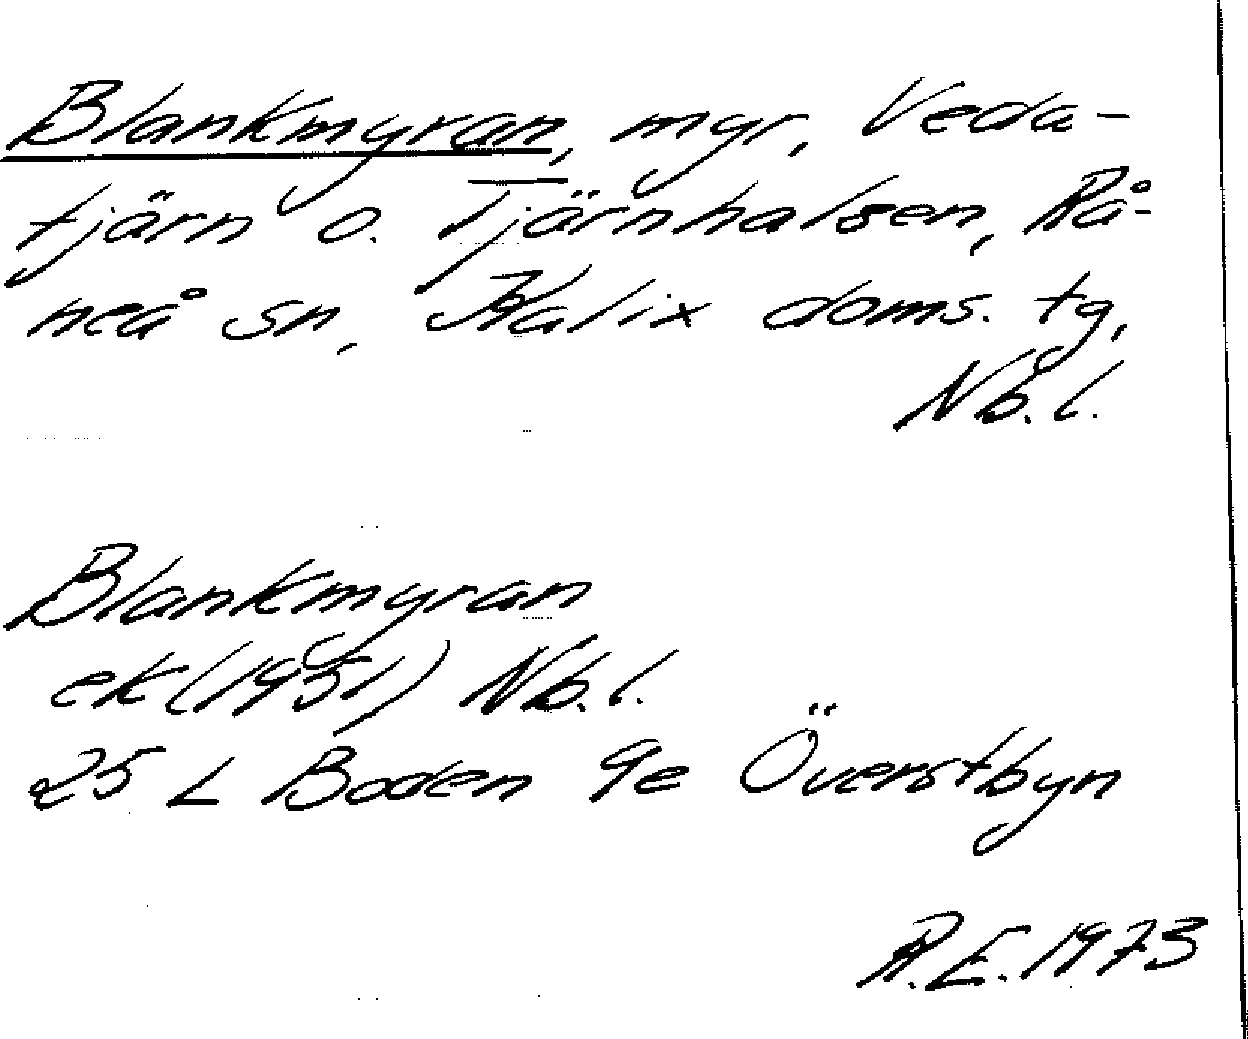 Blankmyran, myr, Veda-
tjärn o. Tjärnhalsen, Rå-
neå sn, Kalix doms. tg,
Nb. l.
Blankmyran
ek (1951) Nb. l.
25 L Boden 9e Överstbyn
R.E. 1973